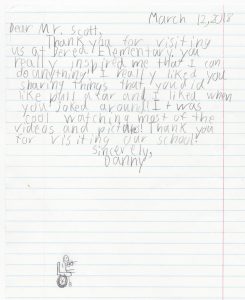 March 12, 2018
Dear Mr. Scott,
Thank you for visiting
us at Bereal Elementary. you
really inspired me that I can
do anything! I really liked you
sharing things that you did
like pull a car and I liked when
you joked around! It was
cool watching most of the
videos and picture! Thank you
for visiting our school!
Sincerely,
Danny